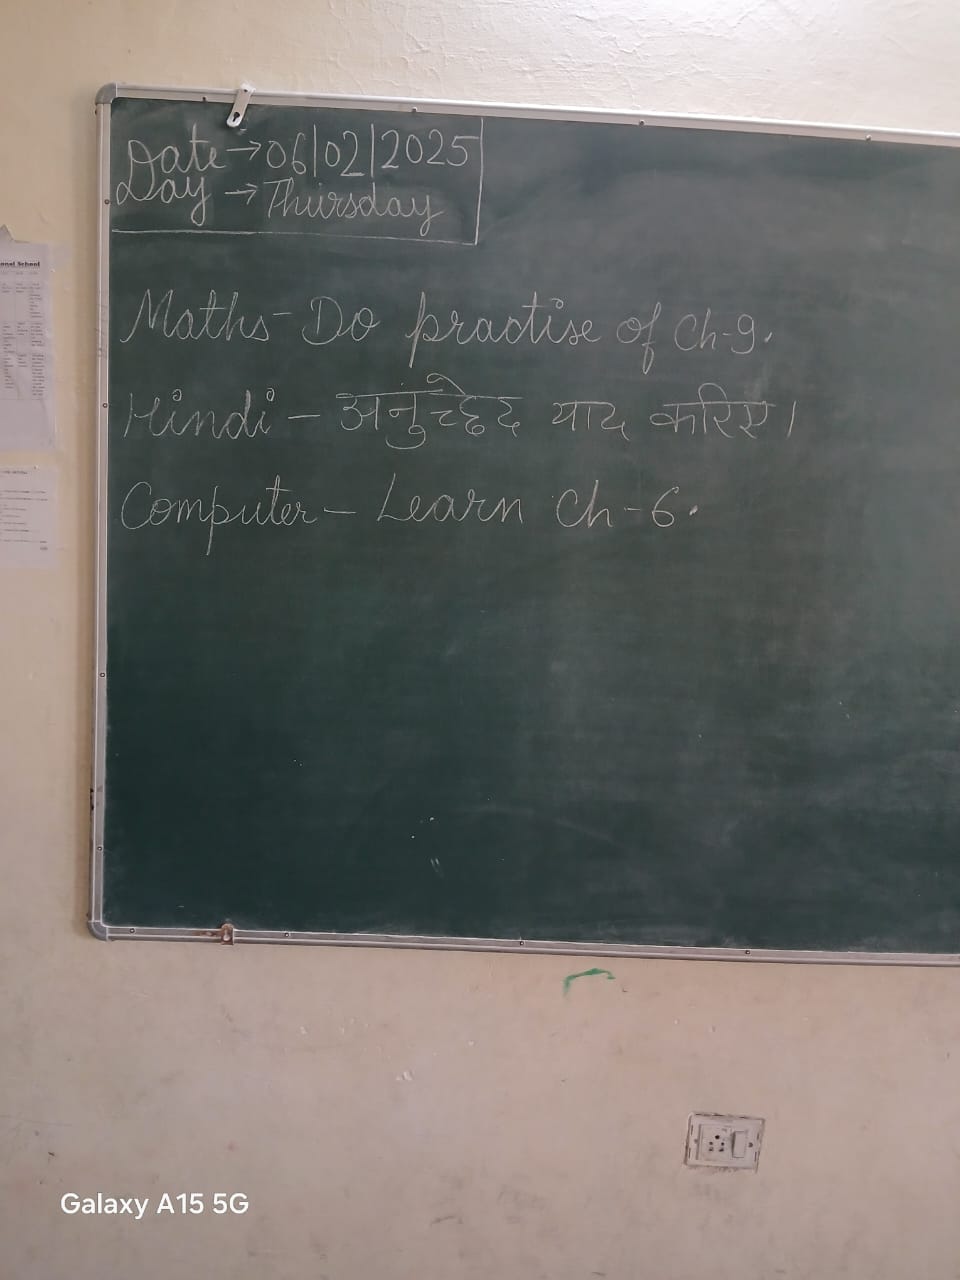 Date → 06/02/2025
Day → Thursday
Maths - Do practise of Ch-9.
Hindi - अनुच्छेद याद करिए।
Computer - Learn Ch-6.
onal School
Galaxy A15 5G